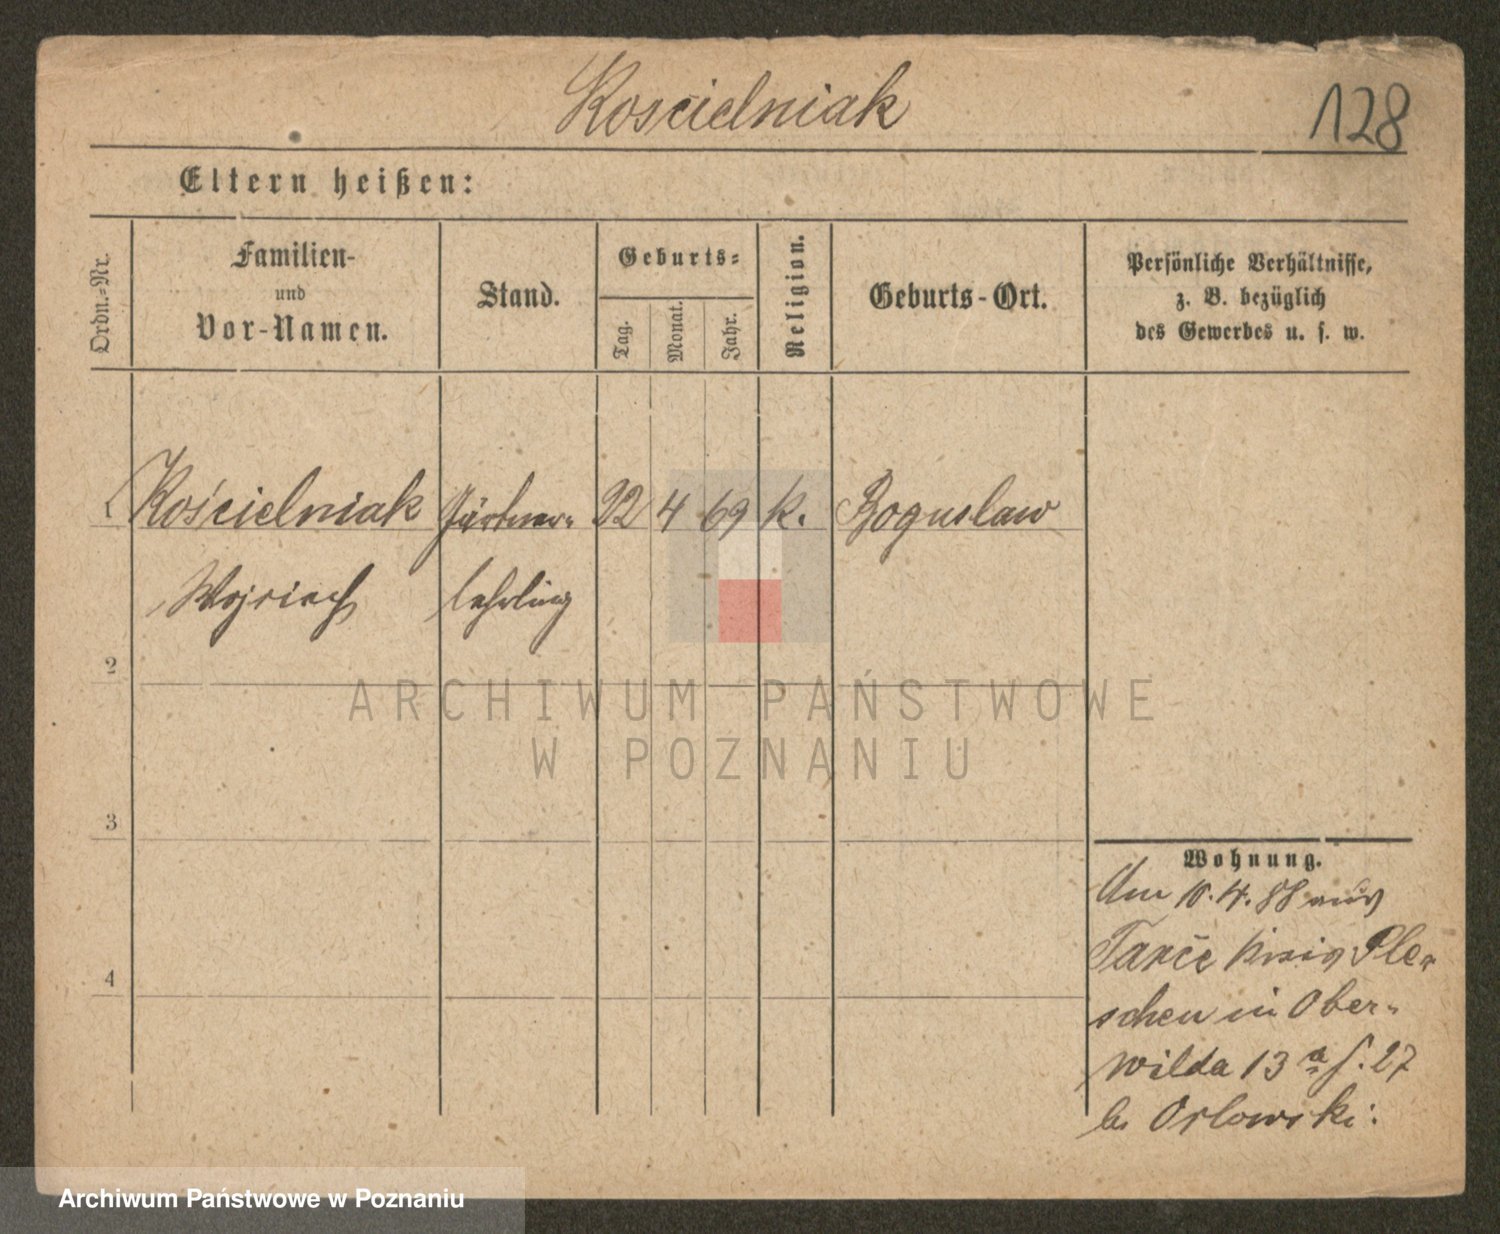 Kościelniak
128
Eltern heißen:
Ordn.-Nr.
Familien-
und
Vor-Namen.
Stand.
Geburts-
Tag.
Monat.
Jahr.
Religion.
Geburts-Ort.
Persönliche Verhältnisse,
z. B. bezüglich
des Gewerbes u. s. w.
1 Kościelniak Gärtner- 22 4 69 k. Boguslaw
Wojciech lehrling
2
ARCHIWUM PAŃSTWOWE
W POZNANIU
3
Wohnung.
Um 10.4.88 aus
Kreis Ple-
4
schen in Ober-
wilda 13 a f. 27
b. Orlowski.
Archiwum Państwowe w Poznaniu